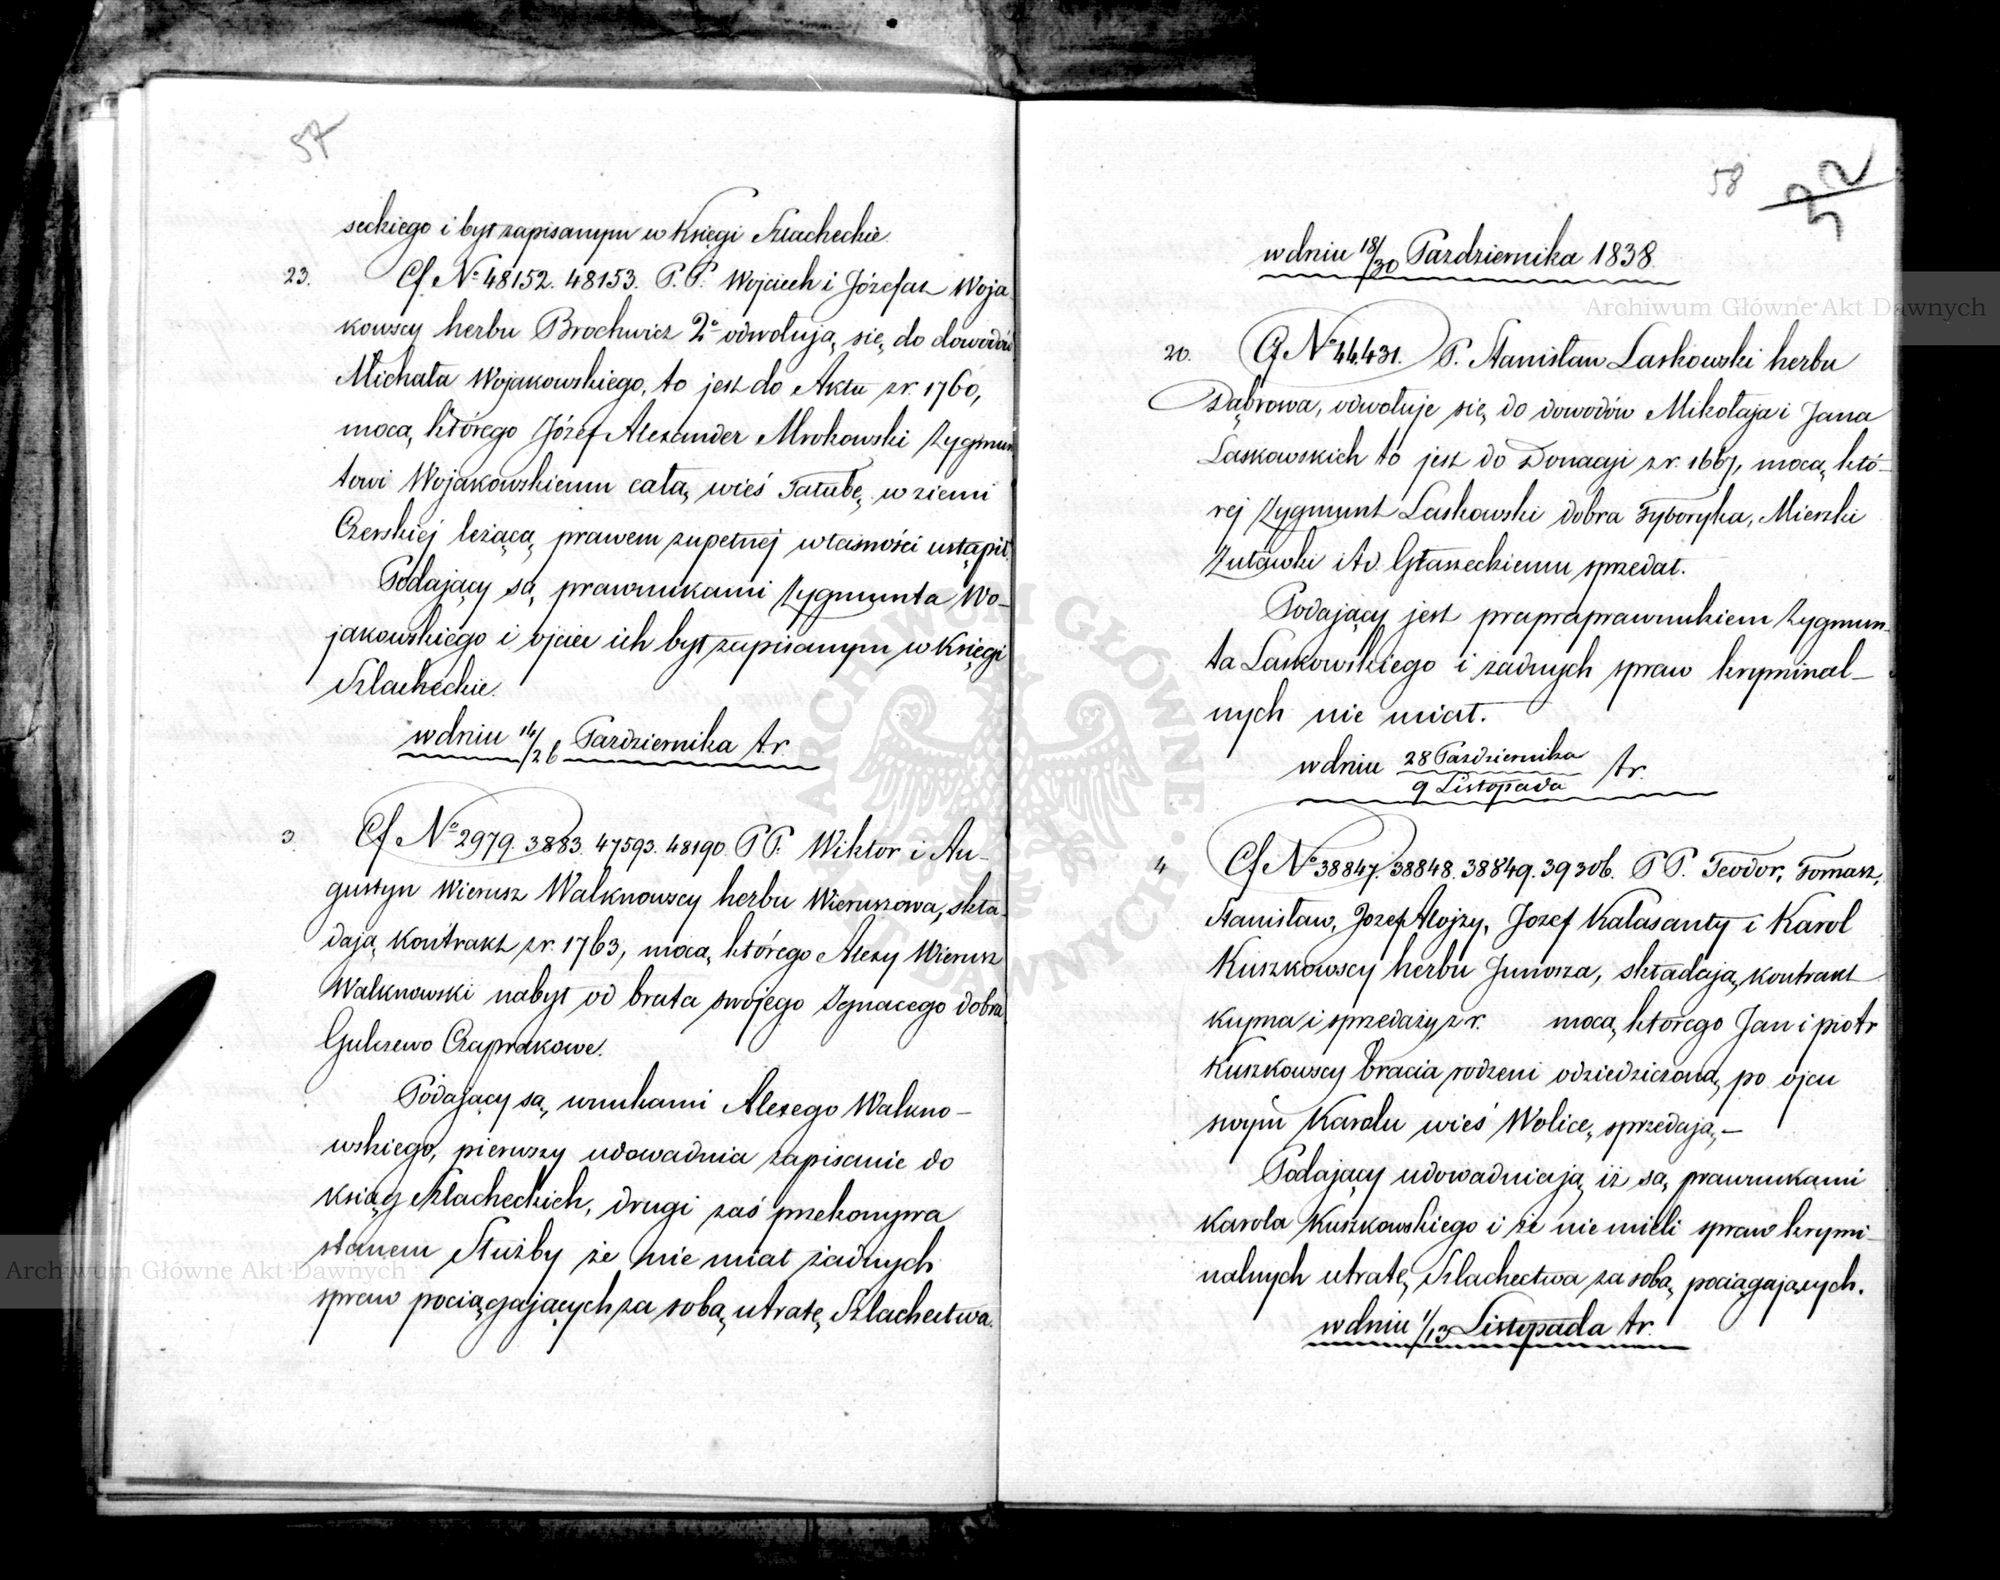 57
seckiego i był zapisanym w Księgi Szlacheckie.
23. Cf. No 48152. 48153. P.P. Wojciech i Józefat Woja
kowscy herbu Brochwicz 2o odwołują się, do dowodów
Michała Wojakowskiego, to jest do Aktu z r. 1760,
mocą którego Józef Alexander Mrokowski Zygmun
towi Wojakowskiemu całą wieś Tatubę w ziemi
Czerskiej leżącą, prawem zupełnej własności ustąpił.
Podający są prawnukami Zygmunta Wo-
jakowskiego i ojciec ich był zapisanym w Księgi
Szlacheckie.
w dniu 14/26 Pazdziernika t.r.
3. Cf No 2979. 3883. 47593. 48190 P P. Wiktor i Au-
gustyn Wierusz Walknowscy herbu Wieruszowa, skła
dają Kontrakt z r. 1763, mocą którego Alexy Wierusz
Walknowski nabył od brata swojego Ignacego dobra
Gulczewo Czaprakowe.
Podający są wnukami Alexego Walkno-
wskiego, pierwszy udowadnia zapisanie do
ksiąg Szlacheckich, drugi zaś przekonywa
stanem Służby że nie miał żadnych
spraw pociągających za sobą utratę Szlachectwa.
58
w dniu 18/30 Pazdziernika 1838.
20. Cf No 44.431. P. Stanisław Laskowski herbu
Dąbrowa, odwołuje się do dowodów Mikołaja i Jana
Laskowskich to jest do Donacyi z r. 1667, mocą któ-
rej Zygmunt Laskowski dobra Tyboryka, Mieszki
Żuławki itd. Głaseckiemu sprzedał.
Podający jest prapraprawnukiem Zygmun-
ta Laskowskiego i żadnych spraw kryminal-
nych nie miał.
w dniu 28 Pazdziernika / 9 Listopada t.r.
4 Cf No 38847. 38848. 38849. 39306. P P. Teodor, Tomasz,
Stanisław, Jozef Alojzy, Jozef Kalasanty i Karol
Kuszkowscy herbu Junosza, składają kontrakt
kupna i sprzedaży z r. mocą ktorego Jan i piotr
Kuszkowscy bracia rodzeni odziedziczoną po ojcu
swym Karolu wieś Wolicę sprzedają,-
Podający udowadniają iż są prawnukami
Karola Kuszkowskiego i że nie mieli spraw krymi
nalnych utratę Szlachectwa za sobą pociągających.
w dniu 1/13 Listopada t.r.
Archiwum Główne Akt Dawnych
Archiwum Główne Akt Dawnych
ARCHIWUM GŁÓWNE AKT DAWNYCH